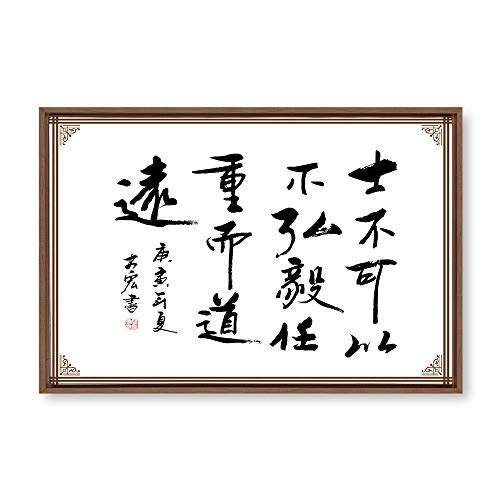 士不可以
不弘毅任
重而道
遠
庚寅初夏
宏書